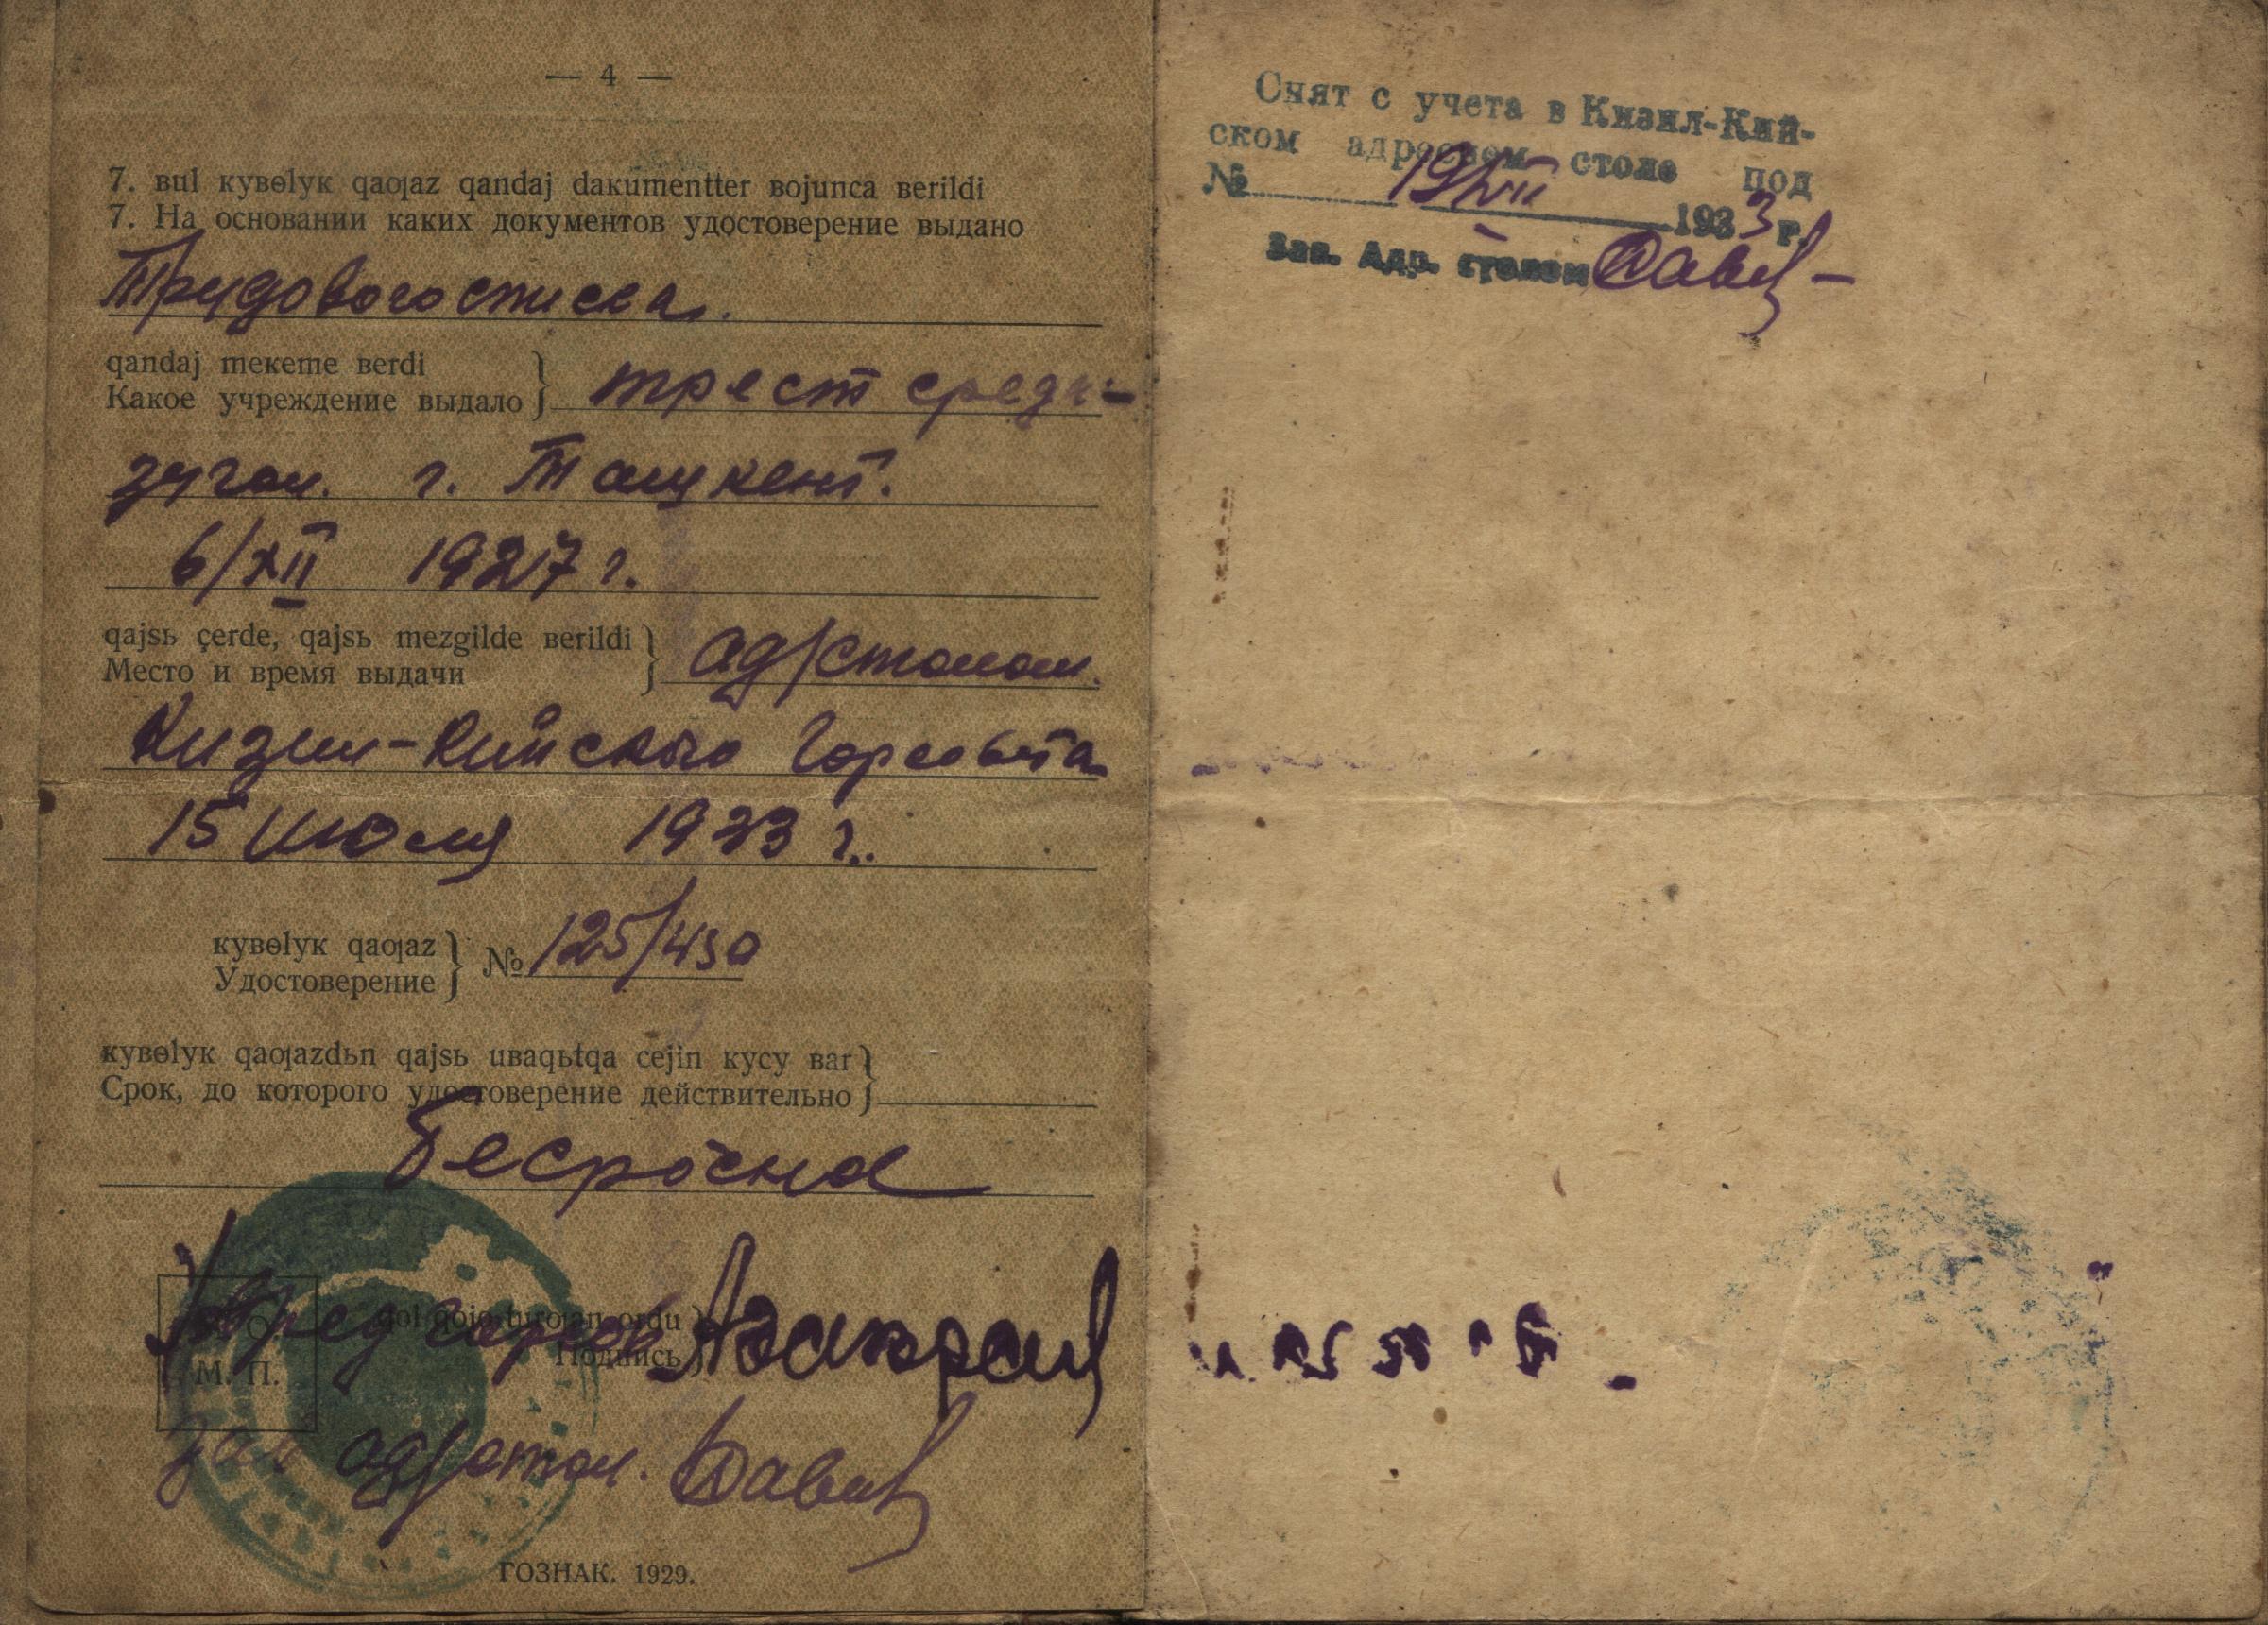 — 4 —
7. вul кyвɵlyк qaƣaz qandaj dakumentter вojunca вerildi
7. На основании каких документов удостоверение выдано
Трудового списка.
qandaj mекеme вerdi
Какое учреждение выдало
трест средн-
г. Ташкент.
6/XII 1927 г.
qajsь çerde, qajsь mezgilde вerildi
Место и время выдачи
адрстолом.
Кизил-Кийского Горсовета
15 июля 1933 г.
кyвɵlyк qaƣaz
Удостоверение
№ 125/430
кyвɵlyк qaƣazdьn qajsь uвaqьtqa cejin кycy вar
Срок, до которого удостоверение действительно
бесрочна
Пред горсов
qol qojo turoƣan ordu
Подпись
М. П.
зав адрстол.
ГОЗНАК. 1929.
Снят с учета в Кизил-Кий-
ском адресном столе под
№ 19/VII 1933 г.
Зав. Адр. столом